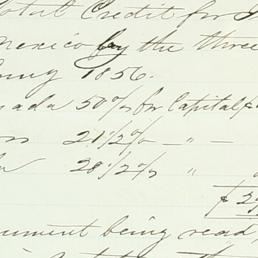 Total Credit for
Mexico by the three
1856.
ada 50% for Capital
21 1/2% — " —
28 1/2% "
$ 2
ument being read,